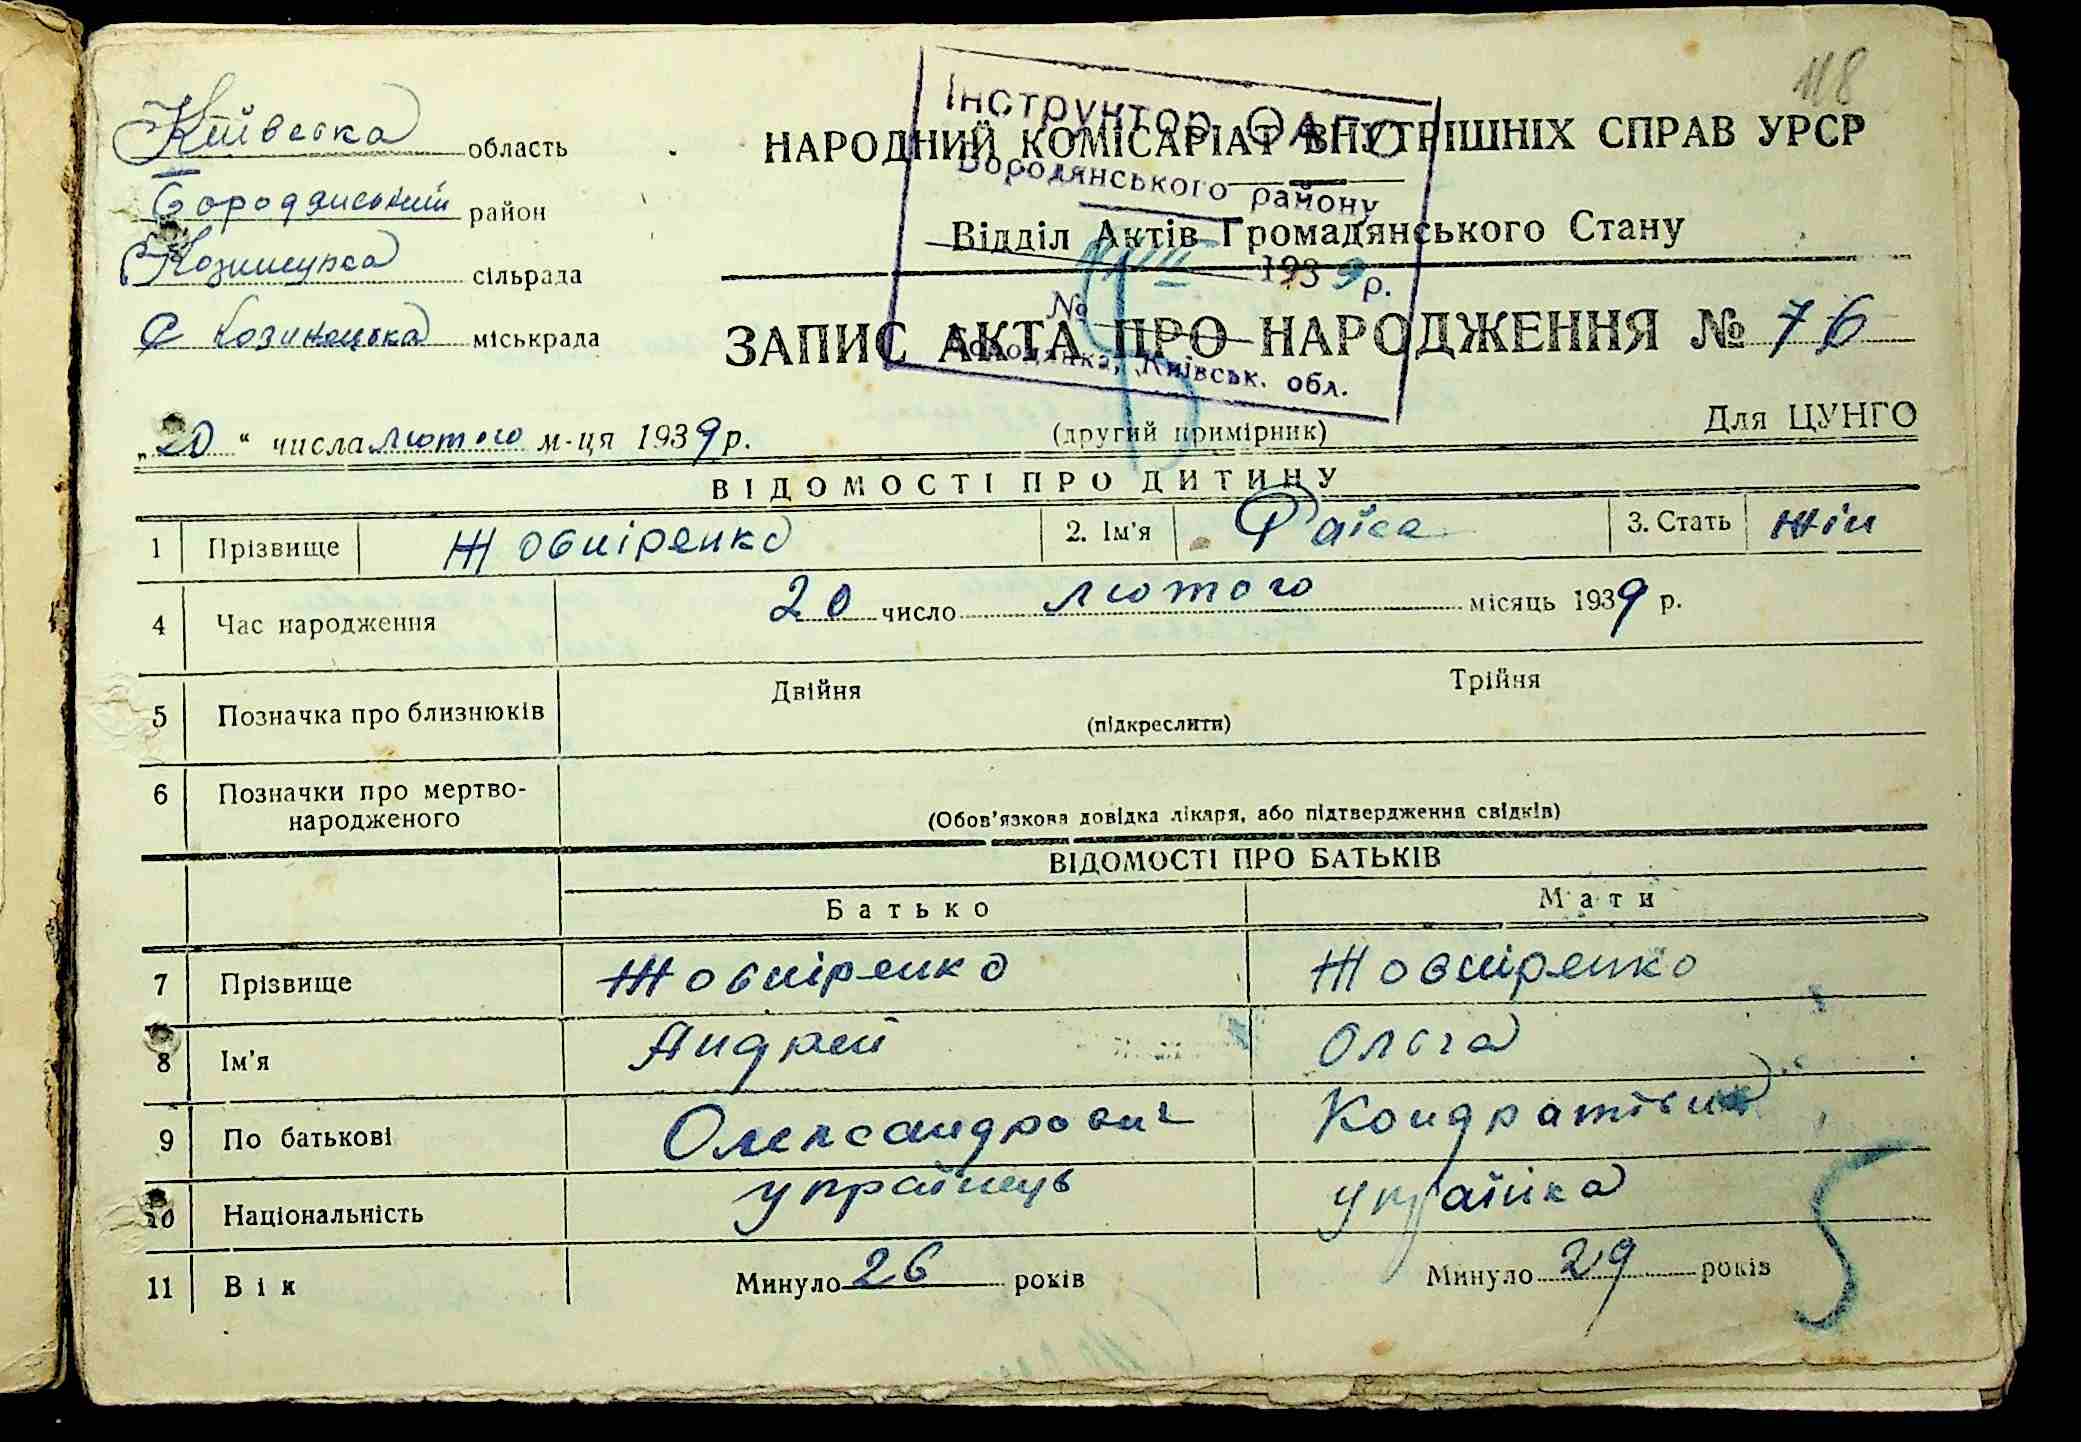 118
Київська область
Інструктор ОАГС
НАРОДНИЙ КОМІСАРІАТ ВНУТРІШНІХ СПРАВ УРСР
Бородянський район
Бородянського району
Відділ Актів Громадянського Стану
сільрада
1939 р.
№
С Козинецька міськрада
ЗАПИС АКТА ПРО НАРОДЖЕННЯ № 76
Бородянка, Київськ. обл.
„20“ числа лютого м-ця 1939 р.
(другий примірник)
Для ЦУНГО
ВІДОМОСТІ ПРО ДИТИНУ
1 Прізвище Жовніренко 2. Ім'я Раїса 3. Стать жін
4 Час народження 20 число лютого місяць 1939 р.
5 Позначка про близнюків Двійня Трійня
(підкреслити)
6 Позначки про мертво-
народженого
(Обов'язкова довідка лікаря, або підтвердження свідків)
ВІДОМОСТІ ПРО БАТЬКІВ
Батько Мати
7 Прізвище Жовніренко Жовніренко
8 Ім'я Андрей Ольга
9 По батькові Олександрович Кондратівна
10 Національність українець українка
11 Вік Минуло 26 років Минуло 29 років
5